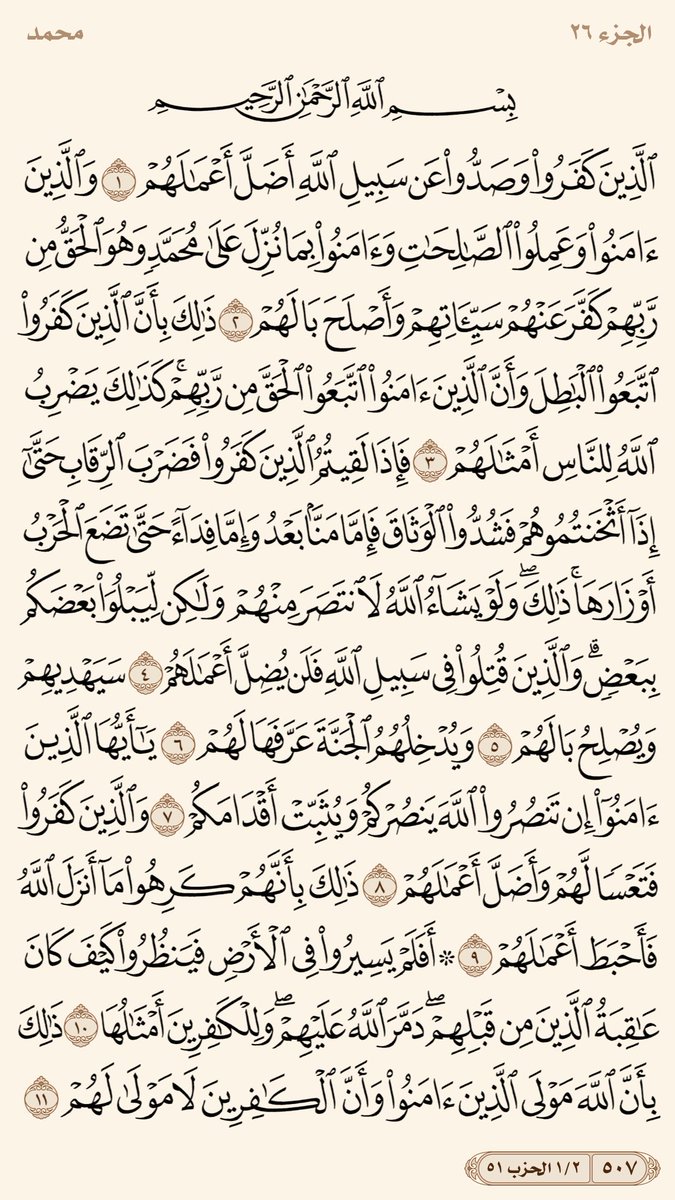 الجزء ٢٦ محمد
بِسْمِ ٱللَّهِ ٱلرَّحْمَٰنِ ٱلرَّحِيمِ
ٱلَّذِينَ كَفَرُوا۟ وَصَدُّوا۟ عَن سَبِيلِ ٱللَّهِ أَضَلَّ أَعْمَٰلَهُمْ ١ وَٱلَّذِينَ
ءَامَنُوا۟ وَعَمِلُوا۟ ٱلصَّٰلِحَٰتِ وَءَامَنُوا۟ بِمَا نُزِّلَ عَلَىٰ مُحَمَّدٍ وَهُوَ ٱلْحَقُّ مِن
رَّبِّهِمْ كَفَّرَ عَنْهُمْ سَيِّـَٔاتِهِمْ وَأَصْلَحَ بَالَهُمْ ٢ ذَٰلِكَ بِأَنَّ ٱلَّذِينَ كَفَرُوا۟
ٱتَّبَعُوا۟ ٱلْبَٰطِلَ وَأَنَّ ٱلَّذِينَ ءَامَنُوا۟ ٱتَّبَعُوا۟ ٱلْحَقَّ مِن رَّبِّهِمْ ۚ كَذَٰلِكَ يَضْرِبُ
ٱللَّهُ لِلنَّاسِ أَمْثَٰلَهُمْ ٣ فَإِذَا لَقِيتُمُ ٱلَّذِينَ كَفَرُوا۟ فَضَرْبَ ٱلرِّقَابِ حَتَّىٰٓ
إِذَآ أَثْخَنتُمُوهُمْ فَشُدُّوا۟ ٱلْوَثَاقَ فَإِمَّا مَنًّۢا بَعْدُ وَإِمَّا فِدَآءً حَتَّىٰ تَضَعَ ٱلْحَرْبُ
أَوْزَارَهَا ۚ ذَٰلِكَ ۖ وَلَوْ يَشَآءُ ٱللَّهُ لَٱنتَصَرَ مِنْهُمْ وَلَٰكِن لِّيَبْلُوَا۟ بَعْضَكُم
بِبَعْضٍ ۗ وَٱلَّذِينَ قُتِلُوا۟ فِى سَبِيلِ ٱللَّهِ فَلَن يُضِلَّ أَعْمَٰلَهُمْ ٤ سَيَهْدِيهِمْ
وَيُصْلِحُ بَالَهُمْ ٥ وَيُدْخِلُهُمُ ٱلْجَنَّةَ عَرَّفَهَا لَهُمْ ٦ يَٰٓأَيُّهَا ٱلَّذِينَ
ءَامَنُوٓا۟ إِن تَنصُرُوا۟ ٱللَّهَ يَنصُرْكُمْ وَيُثَبِّتْ أَقْدَامَكُمْ ٧ وَٱلَّذِينَ كَفَرُوا۟
فَتَعْسًا لَّهُمْ وَأَضَلَّ أَعْمَٰلَهُمْ ٨ ذَٰلِكَ بِأَنَّهُمْ كَرِهُوا۟ مَآ أَنزَلَ ٱللَّهُ
فَأَحْبَطَ أَعْمَٰلَهُمْ ٩ ۞ أَفَلَمْ يَسِيرُوا۟ فِى ٱلْأَرْضِ فَيَنظُرُوا۟ كَيْفَ كَانَ
عَٰقِبَةُ ٱلَّذِينَ مِن قَبْلِهِمْ ۖ دَمَّرَ ٱللَّهُ عَلَيْهِمْ ۖ وَلِلْكَٰفِرِينَ أَمْثَٰلُهَا ١٠ ذَٰلِكَ
بِأَنَّ ٱللَّهَ مَوْلَى ٱلَّذِينَ ءَامَنُوا۟ وَأَنَّ ٱلْكَٰفِرِينَ لَا مَوْلَىٰ لَهُمْ ١١
٥٠٧ ١/٢ الحزب ٥١